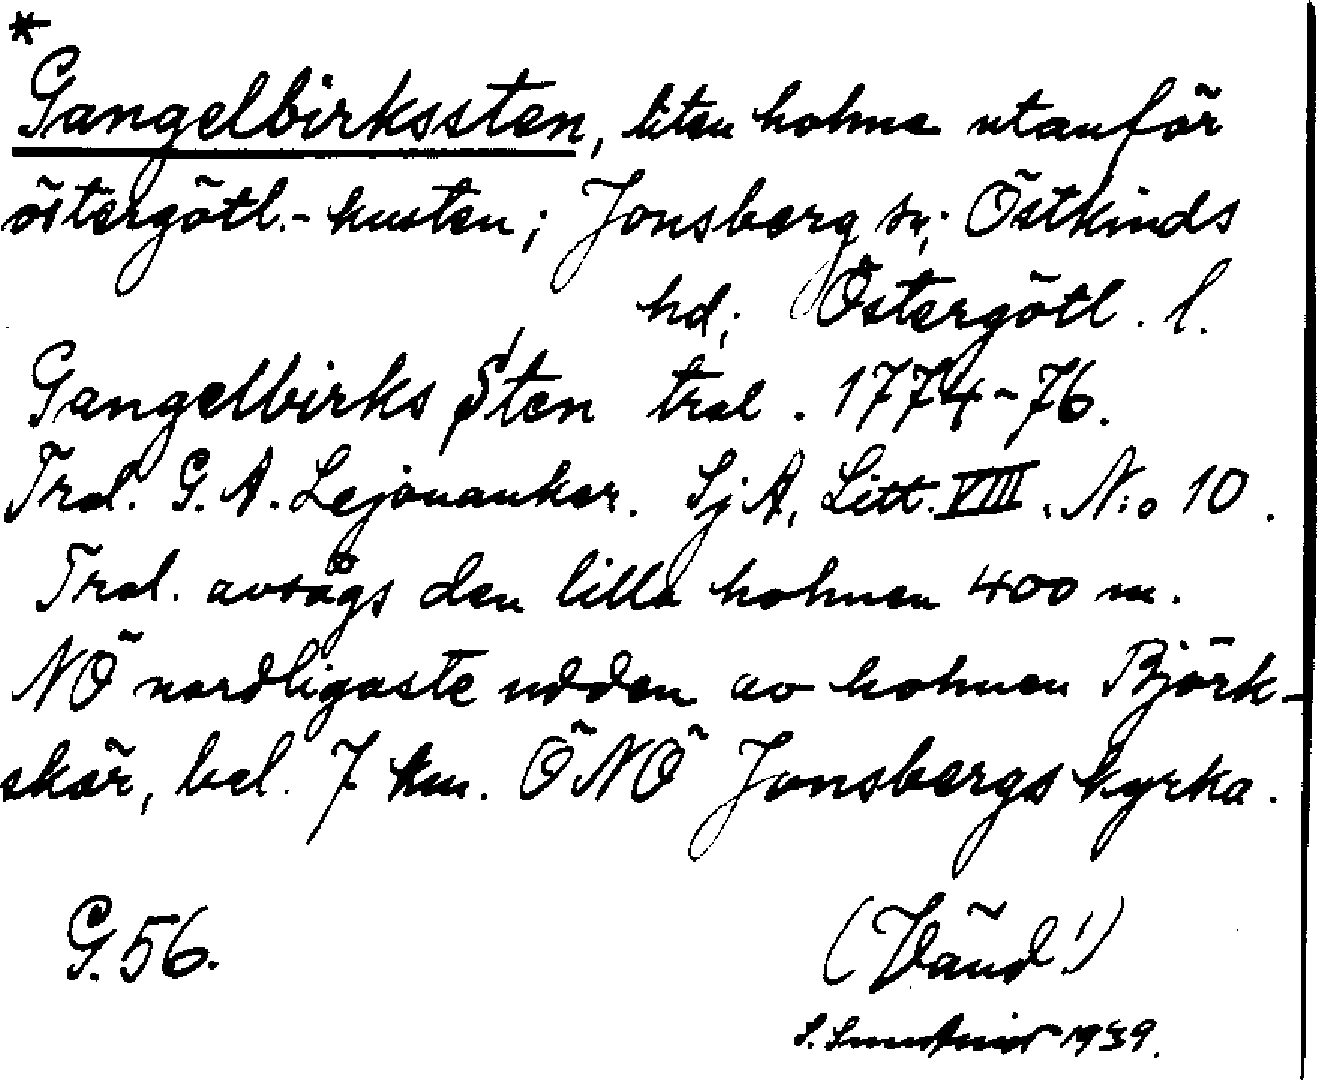 *
Gangelbirkssten, liten holme utanför
östergötl.-kusten; Jonsberg sn; Östkinds
hd; Östergötl. l.
Gangelbirks Sten trol. 1774-76.
Trol. G. A. Lejonankar. SjA, Litt. VIII. N:o 10.
Trol. avsågs den lilla holmen 400 m.
NÖ nordligaste udden av holmen Björk-
skär, bel. 7 km. ÖNÖ Jonsbergs kyrka.
G. 56.
(Vänd!)
S. 1939.